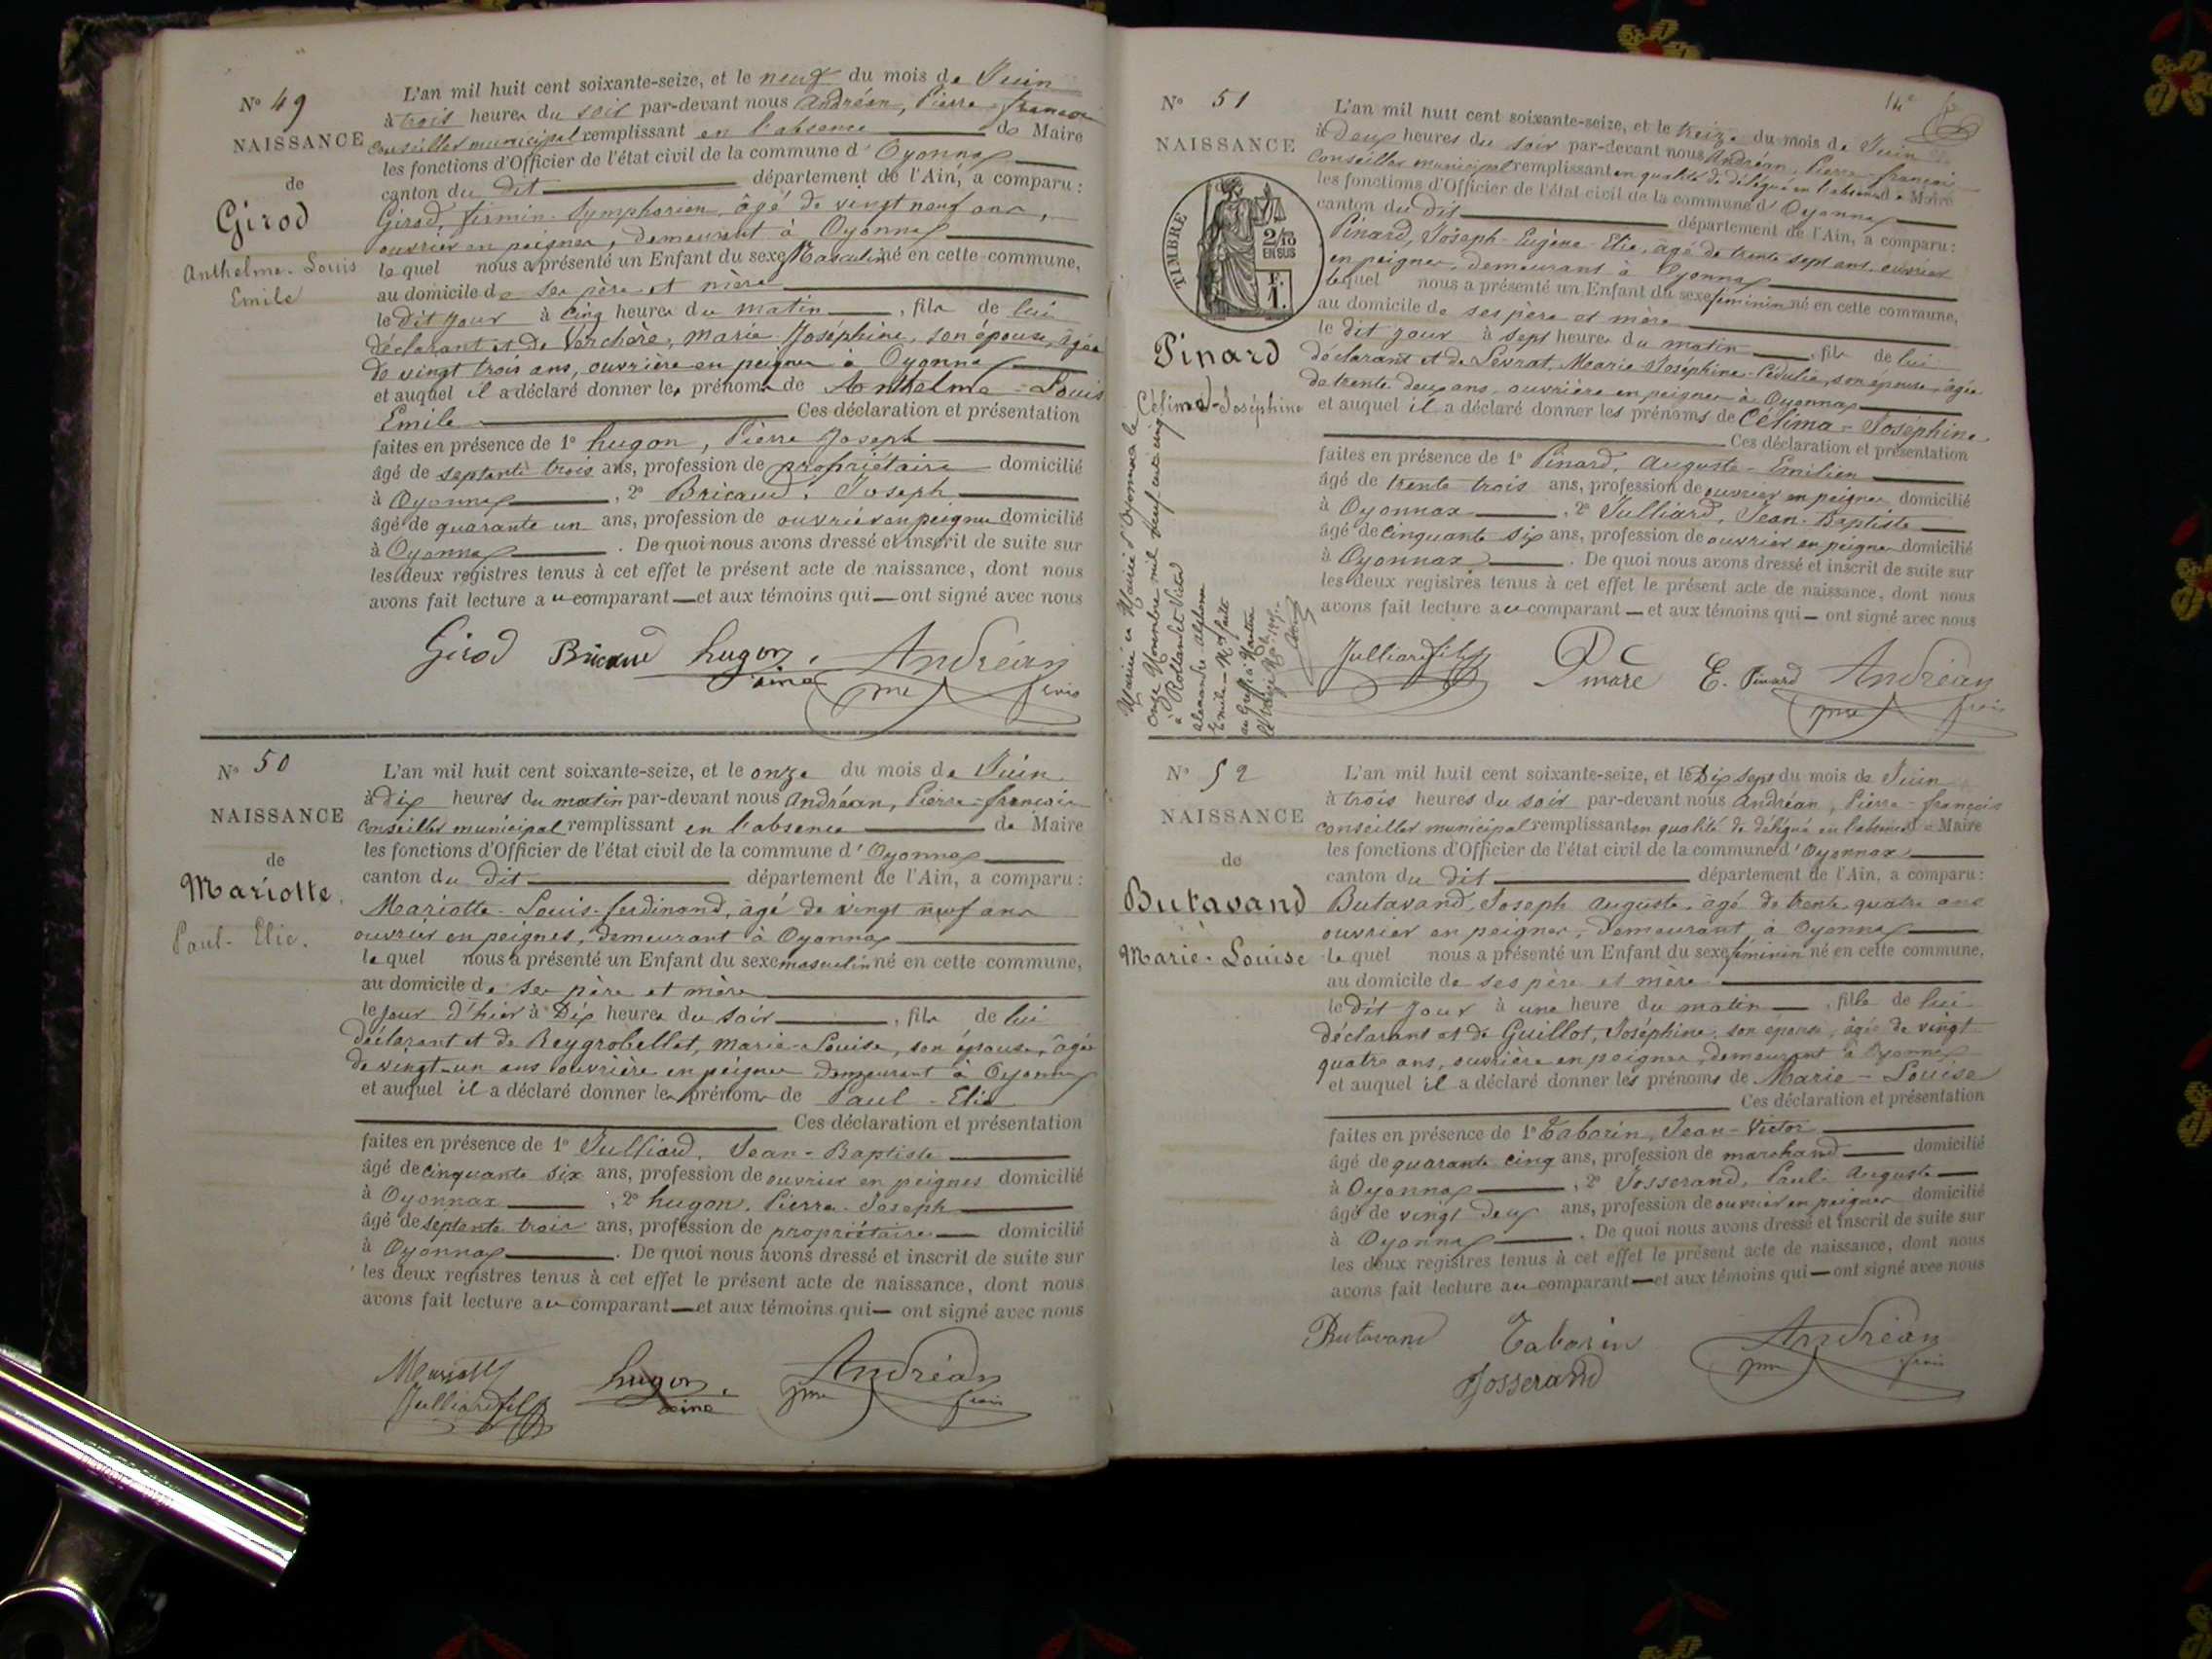 N° 49
NAISSANCE
de
Girod
Anthelme-Louis
Emile
L'an mil huit cent soixante-seize, et le neuf du mois de Juin
à trois heures du soir par-devant nous Andréan, Pierre-françois
conseiller municipal remplissant en l'absence de Maire
les fonctions d'Officier de l'état civil de la commune d'Oyonnax
canton du dit département de l'Ain, a comparu :
Girod, firmin-Symphorien, âgé de vingt neuf ans,
ouvrier en peignes, demeurant à Oyonnax
lequel nous a présenté un Enfant du sexe Masculin né en cette commune,
au domicile de ses père et mère
le dit jour à cinq heures du matin, fils de lui
déclarant et de Verchère, Marie Joséphine, son épouse, âgée
de vingt trois ans, ouvrière en peignes à Oyonnax
et auquel il a déclaré donner les prénoms de Anthelme-Louis
Emile Ces déclaration et présentation
faites en présence de 1° hugon, Pierre Joseph
âgé de septante trois ans, profession de propriétaire domicilié
à Oyonnax, 2° Bricaud, Joseph
âgé de quarante un ans, profession de ouvrier en peignes domicilié
à Oyonnax. De quoi nous avons dressé et inscrit de suite sur
les deux registres tenus à cet effet le présent acte de naissance, dont nous
avons fait lecture au comparant et aux témoins qui ont signé avec nous
Girod Bricaud hugon Andréan
aine pre frois
N° 50
NAISSANCE
de
Mariotte.
Paul-Elie.
L'an mil huit cent soixante-seize, et le onze du mois de Juin
à dix heures du matin par-devant nous Andréan, Pierre-françois
conseiller municipal remplissant en l'absence de Maire
les fonctions d'Officier de l'état civil de la commune d'Oyonnax
canton du dit département de l'Ain, a comparu :
Mariotte-Louis-ferdinond, âgé de vingt neuf ans
ouvrier en peignes, demeurant à Oyonnax
lequel nous a présenté un Enfant du sexe masculin né en cette commune,
au domicile de ses père et mère
le jour d'hier à Dix heures du soir, fils de lui
déclarant et de Reygrobellet, Marie-Louise, son épouse, âgée
de vingt-un ans ouvrière en peignes demeurant à Oyonnax
et auquel il a déclaré donner les prénoms de Paul-Elie
Ces déclaration et présentation
faites en présence de 1° Julliard, Jean-Baptiste
âgé de cinquante six ans, profession de ouvrier en peignes domicilié
à Oyonnax, 2° hugon, Pierre-Joseph
âgé de septante trois ans, profession de propriétaire domicilié
à Oyonnax. De quoi nous avons dressé et inscrit de suite sur
les deux registres tenus à cet effet le présent acte de naissance, dont nous
avons fait lecture au comparant et aux témoins qui ont signé avec nous
Mariotte
Julliard fils hugon Andréan
aine pre frois
14e
N° 51
NAISSANCE
TIMBRE
2/10
EN SUS
F.
1.
Pinard
Célima-Joséphine
Mariée en Mairie d'Oyonnax le
onze Novembre mil neuf cent cinq
à Rollandet Victor
alexandre alphonse
Emile
au Greffe à Nantua
L'an mil huit cent soixante-seize, et le treize du mois de Juin
à deux heures du soir par-devant nous Andréan, Pierre-françois
conseiller municipal remplissant en qualité de délégué en l'absence de Maire
les fonctions d'Officier de l'état civil de la commune d'Oyonnax
canton du dit département de l'Ain, a comparu :
Pinard, Joseph-Eugène-Elie, âgé de trente sept ans, ouvrier
en peignes, demeurant à Oyonnax
lequel nous a présenté un Enfant du sexe féminin né en cette commune,
au domicile de ses père et mère
le dit jour à sept heures du matin, fils de lui
déclarant et de Levrat, Marie-Joséphine-Cédulie, son épouse, âgée
de trente deux ans, ouvrière en peignes à Oyonnax
et auquel il a déclaré donner les prénoms de Célima-Joséphine.
Ces déclaration et présentation
faites en présence de 1° Pinard, Auguste-Emilien
âgé de trente trois ans, profession de ouvrier en peignes domicilié
à Oyonnax, 2° Julliard, Jean-Baptiste
âgé de cinquante six ans, profession de ouvrier en peignes domicilié
à Oyonnax. De quoi nous avons dressé et inscrit de suite sur
les deux registres tenus à cet effet le présent acte de naissance, dont nous
avons fait lecture au comparant et aux témoins qui ont signé avec nous
Julliard fils Pinard E. Pinard Andréan
pre frois
N° 52
NAISSANCE
de
Butavand
Marie-Louise
L'an mil huit cent soixante-seize, et le Dix sept du mois de Juin
à trois heures du soir par-devant nous Andréan, Pierre-françois
conseiller municipal remplissant en qualité de délégué en l'absence de Maire
les fonctions d'Officier de l'état civil de la commune d'Oyonnax
canton du dit département de l'Ain, a comparu :
Butavand, Joseph Auguste, âgé de trente quatre ans
ouvrier en peignes, demeurant à Oyonnax
lequel nous a présenté un Enfant du sexe féminin né en cette commune,
au domicile de ses père et mère
le dit jour à une heure du matin, fille de lui
déclarant et de Guillot, Joséphine, son épouse, âgée de vingt
quatre ans, ouvrière en peignes, demeurant à Oyonnax
et auquel il a déclaré donner les prénoms de Marie-Louise
Ces déclaration et présentation
faites en présence de 1° Taborin, Jean-Victor
âgé de quarante cinq ans, profession de marchand domicilié
à Oyonnax, 2° Josserand, Paul Auguste
âgé de vingt deux ans, profession de ouvrier en peignes domicilié
à Oyonnax. De quoi nous avons dressé et inscrit de suite sur
les deux registres tenus à cet effet le présent acte de naissance, dont nous
avons fait lecture au comparant et aux témoins qui ont signé avec nous
Butavand Taborin Andréan
Josserand pre frois